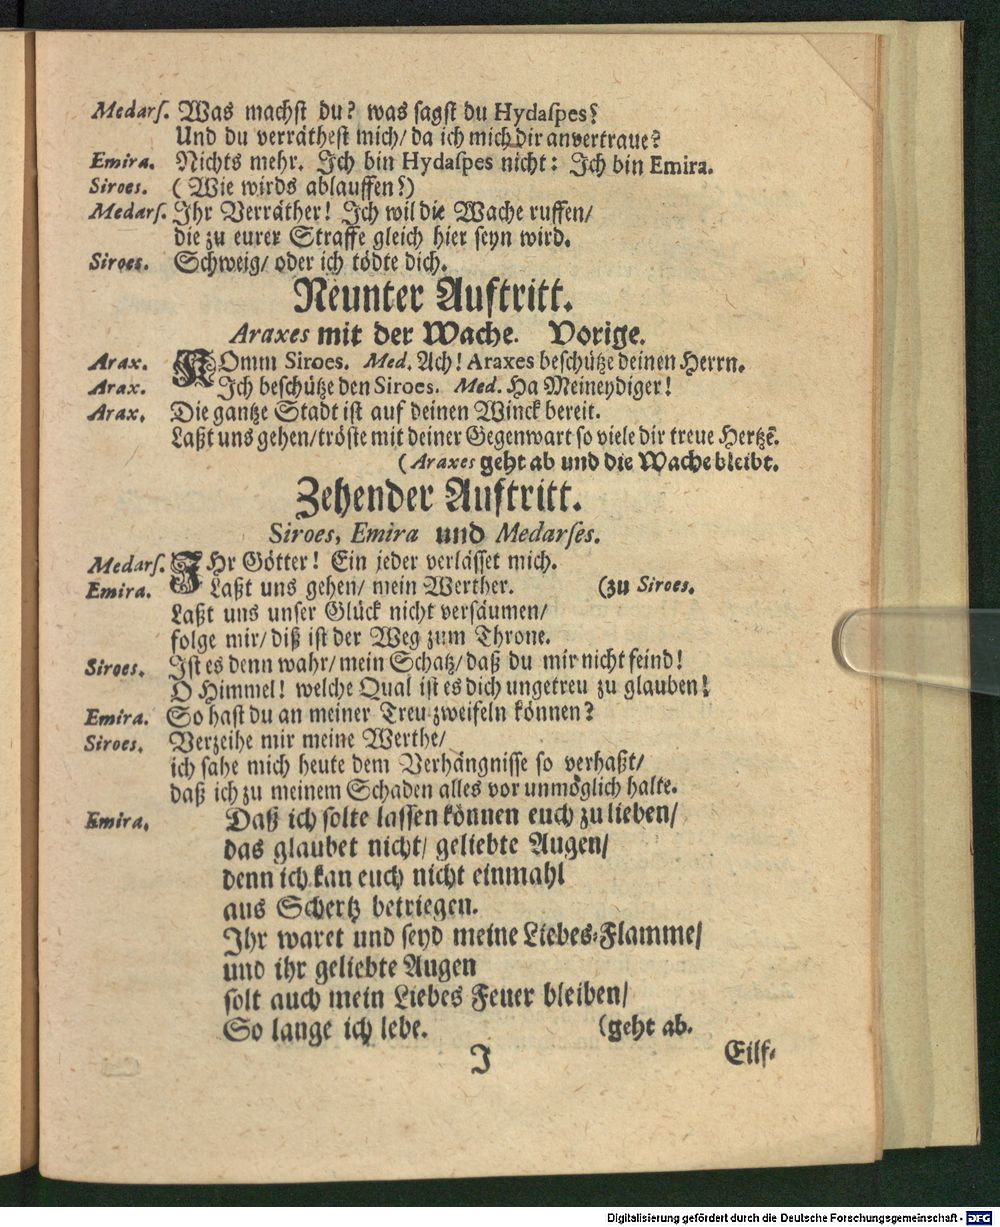 Medarſ. Was machſt du? was ſagſt du Hydaſpes?
Und du verräthest mich/ da ich mich dir anvertraue?
Emira. Nichts mehr. Ich bin Hydaſpes nicht: Ich bin Emira.
Siroes. (Wie wirds ablauffen?)
Medarſ. Ihr Verräther! Ich wil die Wache ruffen/
die zu eurer Straffe gleich hier ſeyn wird.
Siroes. Schweig/ oder ich tödte dich.
Neunter Auftritt.
Araxes mit der Wache. Vorige.
Arax. KOmm Siroes. Med. Ach! Araxes beſchütze deinen Herrn.
Arax. Ich beſchütze den Siroes. Med. Ha Meineydiger!
Arax. Die gantze Stadt iſt auf deinen Winck bereit.
Laßt uns gehen/ tröſte mit deiner Gegenwart ſo viele dir treue Hertzẽ.
(Araxes geht ab und die Wache bleibt.
Zehender Auftritt.
Siroes, Emira und Medarſes.
Medarſ. IHr Götter! Ein jeder verläſſet mich.
Emira. Laßt uns gehen/ mein Werther. (zu Siroes.
Laßt uns unſer Glück nicht verſäumen/
folge mir/ diß iſt der Weg zum Throne.
Siroes. Iſt es denn wahr/ mein Schatz/ daß du mir nicht feind!
O Himmel! welche Qual iſt es dich ungetreu zu glauben!
Emira. So haſt du an meiner Treu zweifeln können?
Siroes. Verzeihe mir meine Werthe/
ich ſahe mich heute dem Verhängniſſe ſo verhaßt/
daß ich zu meinem Schaden alles vor unmöglich halte.
Emira. Daß ich ſolte laſſen können euch zu lieben/
das glaubet nicht/ geliebte Augen/
denn ich kan euch nicht einmahl
aus Schertz betriegen.
Ihr waret und ſeyd meine Liebes-Flamme/
und ihr geliebte Augen
ſolt auch mein Liebes Feuer bleiben/
So lange ich lebe. (geht ab.
J Eilf-
Digitalisierung gefördert durch die Deutsche Forschungsgemeinschaft - DFG